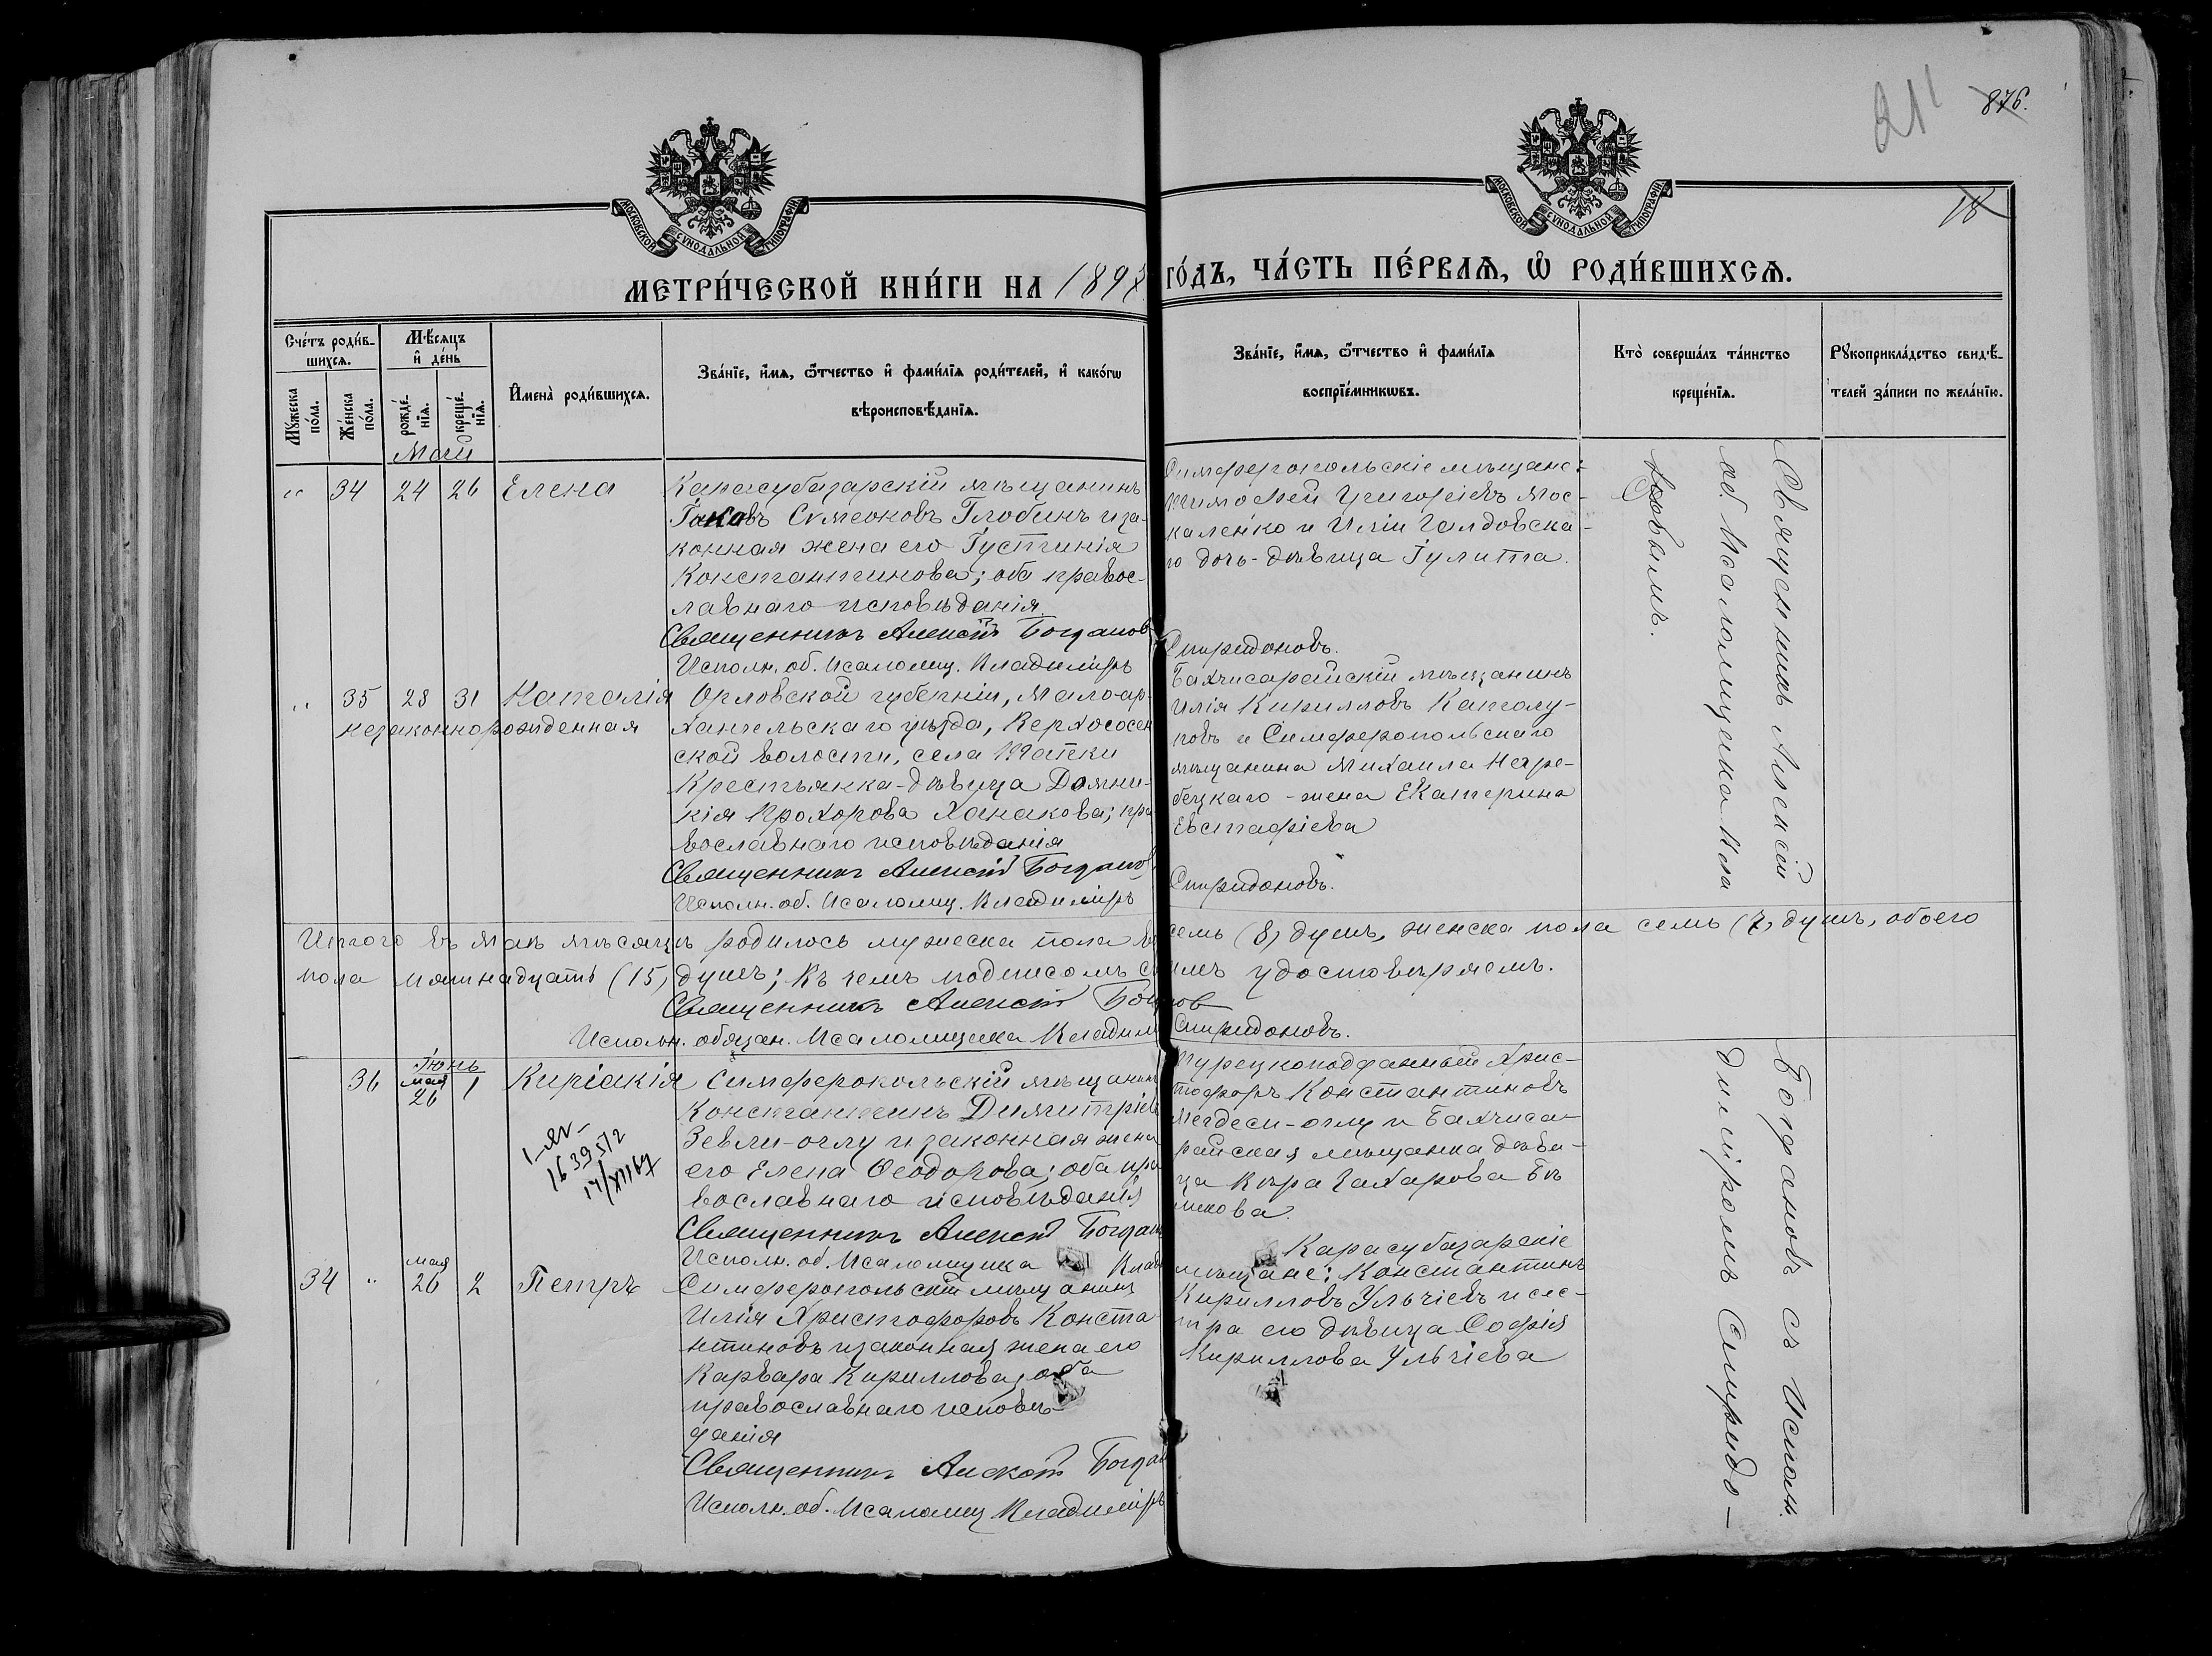 211
876.
18
МОСКОВСКОЙ СУНОДАЛЬНОЙ ТИПОГРАФІИ
МОСКОВСКОЙ СУНОДАЛЬНОЙ ТИПОГРАФІИ
МЕТРИ́ЧЕСКОЙ КНИ́ГИ НА 1897 ГО́ДЪ, ЧА́СТЬ ПЕ́РВАѦ, Ѡ҆ РОДИ́ВШИХСѦ.
Сче́тъ роди́в-
шихсѧ.
Мꙋ́жеска по́ла.
Же́нска по́ла.
Мѣ́сѧцъ
и҆ де́нь
рожде́-нїѧ.
креще́-нїѧ.
И҆мена̀ роди́вшихсѧ.
Зва́нїе, и҆́мѧ, ѻ҆́тчество и҆ фами́лїѧ роди́телей, и҆ како́гѡ
вѣроисповѣ́данїѧ.
Зва́нїе, и҆́мѧ, ѻ҆́тчество и҆ фами́лїѧ
воспрїе́мникѡвъ.
Кто̀ соверша́лъ та́инство
креще́нїѧ.
Рꙋкоприкла́дство свидѣ́-
телей за́писи по жела́нїю.
Май
" 34 24 26 Елена
Карасубазарскій мѣщанинъ
Іаковъ Симеоновъ Глобинъ и за-
конная жена его Іустинія
Константинова; оба правос-
лавнаго исповѣданія.
Священникъ Алексій Богданов
Исполн. об. Псаломщ. Владиміръ
Симферопольскіе мѣщане:
Тимофей Григорьевъ Мос-
каленко и Иліи Галдовска-
го дочь-дѣвица Іулитта.
Спиридоновъ.
" 35 28 31 Наталія
незаконнорожденная
Орловской губерніи, Мало-ар-
хангельскаго уѣзда, Верхососен
ской волости, села
Крестьянка-дѣвица Домни-
кія Прохорова Ханакова; пра
вославнаго исповѣданія
Священникъ Алексій Богданов
Исполн. об. Псаломщ. Владиміръ
Бахчисарайскій мѣщанинъ
Илія Кирилловъ Каппалу-
повъ и Симферопольскаго
мѣщанина Михаила Нере-
бецкаго - жена Екатерина
Евстафіева
Спиридоновъ.
Итого въ Маѣ мѣсяцѣ родилось мужеска пола восемь (8) душъ, женска пола семь (7) душъ, обоего
пола пятнадцать (15) душъ; въ чемъ подписомъ симъ удостовѣряемъ.
Священникъ Алексій Богданов
Исполн. обязан. Псаломщика Владим Спиридоновъ.
Іюнь
36 мая 26 1 Киріакія
1-яг-
1639512
17/XII 67
Симферопольскій мѣщанинъ
Константинъ Димитріев
Зевли-оглу и законная жена
его Елена Ѳеодорова; оба пра
вославнаго исповѣданія
Священникъ Алексій Богдан
Исполн. об. Псаломщика Влад
Турецкоподданный Хрис-
тофоръ Константиновъ
Мегдеси-оглу и Бахчиса-
райская мѣщанка дѣви-
ца Вѣра Захарова Бѣ
ликова.
34 " мая 26 2 Петръ
Симферопольскій мѣщанинъ
Илія Христофоровъ Конста-
нтиновъ и законная жена его
Варвара Кириллова, оба
православнаго исповѣ-
данія
Священникъ Алексій Богдан
Исполн. об. Псаломщ Владиміръ
Карасубазарскіе
мѣщане: Константинъ
Кирилловъ Ульчіевъ и сес-
тра его дѣвица Софія
Кириллова Ульчіева
Священникъ Алексій Богдановъ съ Исполн.
об. Псаломщика Вла
диміромъ Спиридо-
новымъ.